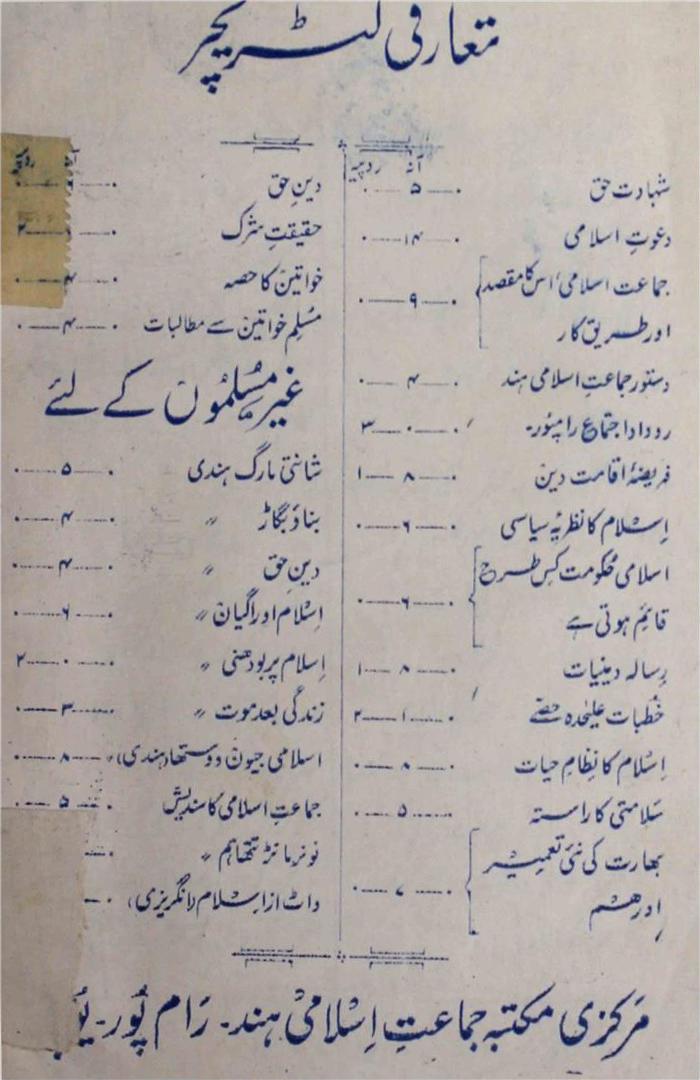 تعارفی لٹریچر
آنہ روپیہ
شہادت حق ۰——۵——۰
دعوتِ اسلامی ۰——۱۴——۰
جماعت اسلامی، اس کا مقصد
اور طریق کار ۰——۹——۰
دستور جماعتِ اسلامی ہند ۰——۴——۰
روداد اجتماع رامپور۔ ۰——۰——۳
فریضۂ اقامت دین ۰——۸——۱
اسلام کا نظریۂ سیاسی ۰——۶——۰
اسلامی حکومت کس طرح
قائم ہوتی ہے ۰——۶——۰
رسالہ دینیات ۰——۸——۱
خطبات علیٰحدہ حصّے ۰——۱——۲
اسلام کا نظامِ حیات ۰——۸——۰
سلامتی کا راستہ ۰——۵——۰
بھارت کی نئی تعمیر
اور ہم ۰——۷——۰
روپیہ
دینِ حق
حقیقتِ شرک
خواتین کا حصہ
مسلم خواتین سے مطالبات ۰——۴——۰
غیر مسلموں کے لئے
شانتی مارگ ہندی ۰——۵——۰
بناؤ بگاڑ 〃 ۰——۴——۰
دینِ حق 〃 ۰——۴——۰
اسلام اور اگیان 〃 ۰——۶——۰
اسلام پر بودھنی 〃 ۰——۰——۲
زندگی بعد موت 〃 ۰——۳——۰
اسلامی جیون ووستھا (ہندی) ۰——۸——۰
جماعتِ اسلامی کا سندیش ۰——۵——۰
نونرمانڑ تتھا ہم 〃
واٹ از اسلام (انگریزی)
مرکزی مکتبہ جماعتِ اسلامی ہند۔ رام پور۔